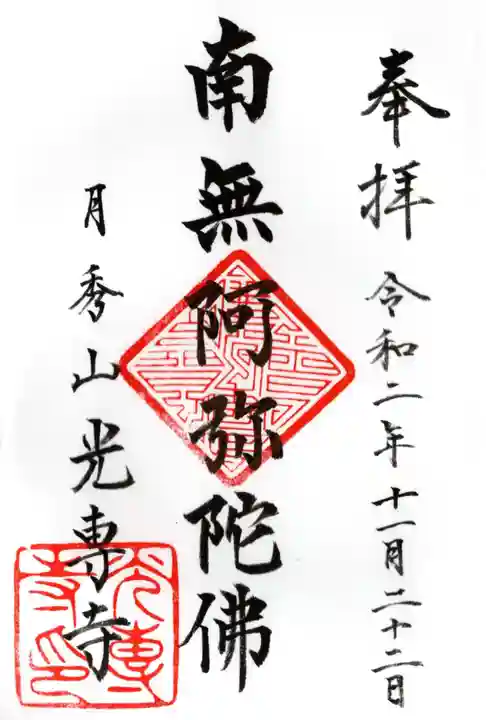 奉拝 令和二年十一月二十二日
南無阿弥陀佛
月秀山光専寺
光專寺印